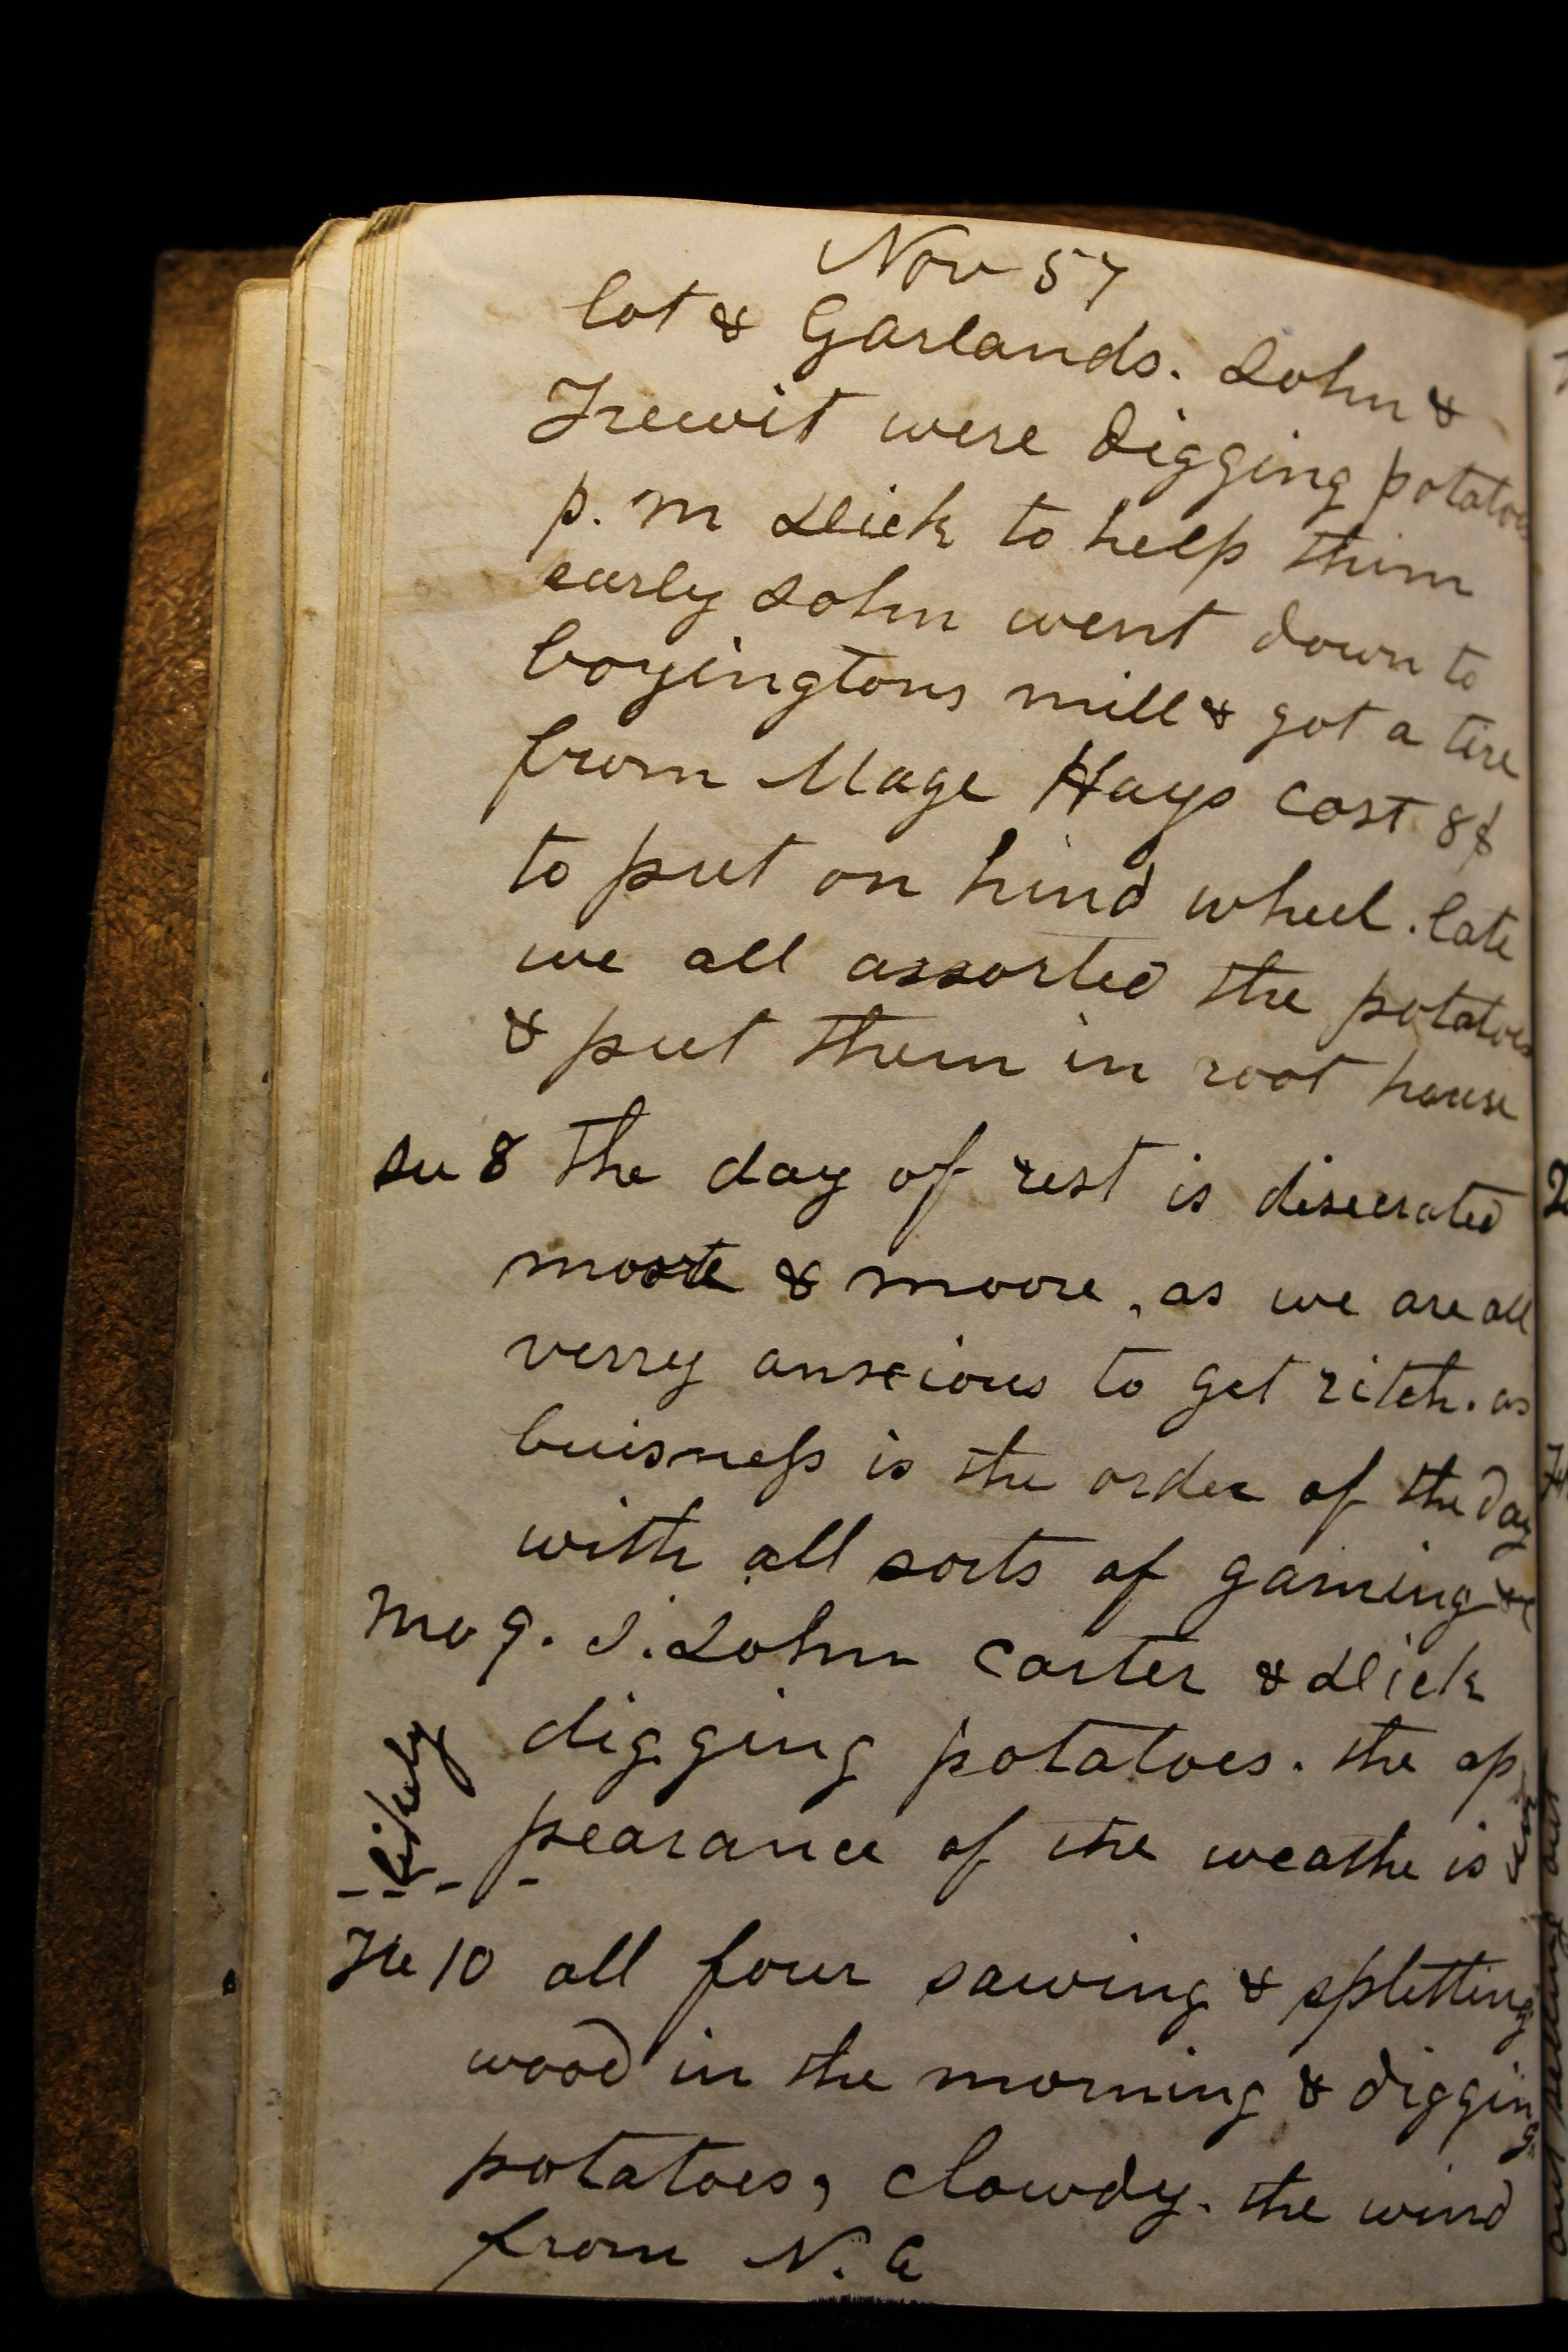 Nov 57
lot & Garlands. John &
Trewit were digging potatoes
p. m Dick to help thim
early John went down to
boyingtons mill & got a tire
from Mage Hays cost 8$
to put on hind wheel. late
we all assorted the potatoes
& put them in root house
Su 8 The day of rest is disecrated
moore & moore, as we are all
verry anxcious to get ritch. as
buisness is the order of the day
with all sorts of gaming &c
Mo 9. I. John Carter & Dick
digging potatoes. the ap
pearance of the weathe is
likely
Tu 10 all four sawing & splitting
wood in the morning & digging
potatoes, clowdy. the wind
from N. E